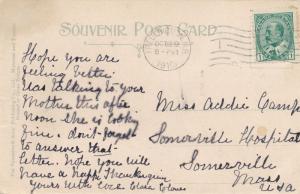 SOUVENIR POST CARD
OCT
8-PM
1910
Hope you are
feeling better.
Was talking to your
Mother this after
noon she is looking
fine. don't forget
to answer that
letter. Hope you will
have a Happy Thanksgiving
yours with love
Miss Addie Camp
Somerville Hospital
Somerville
Mass
U.S.A